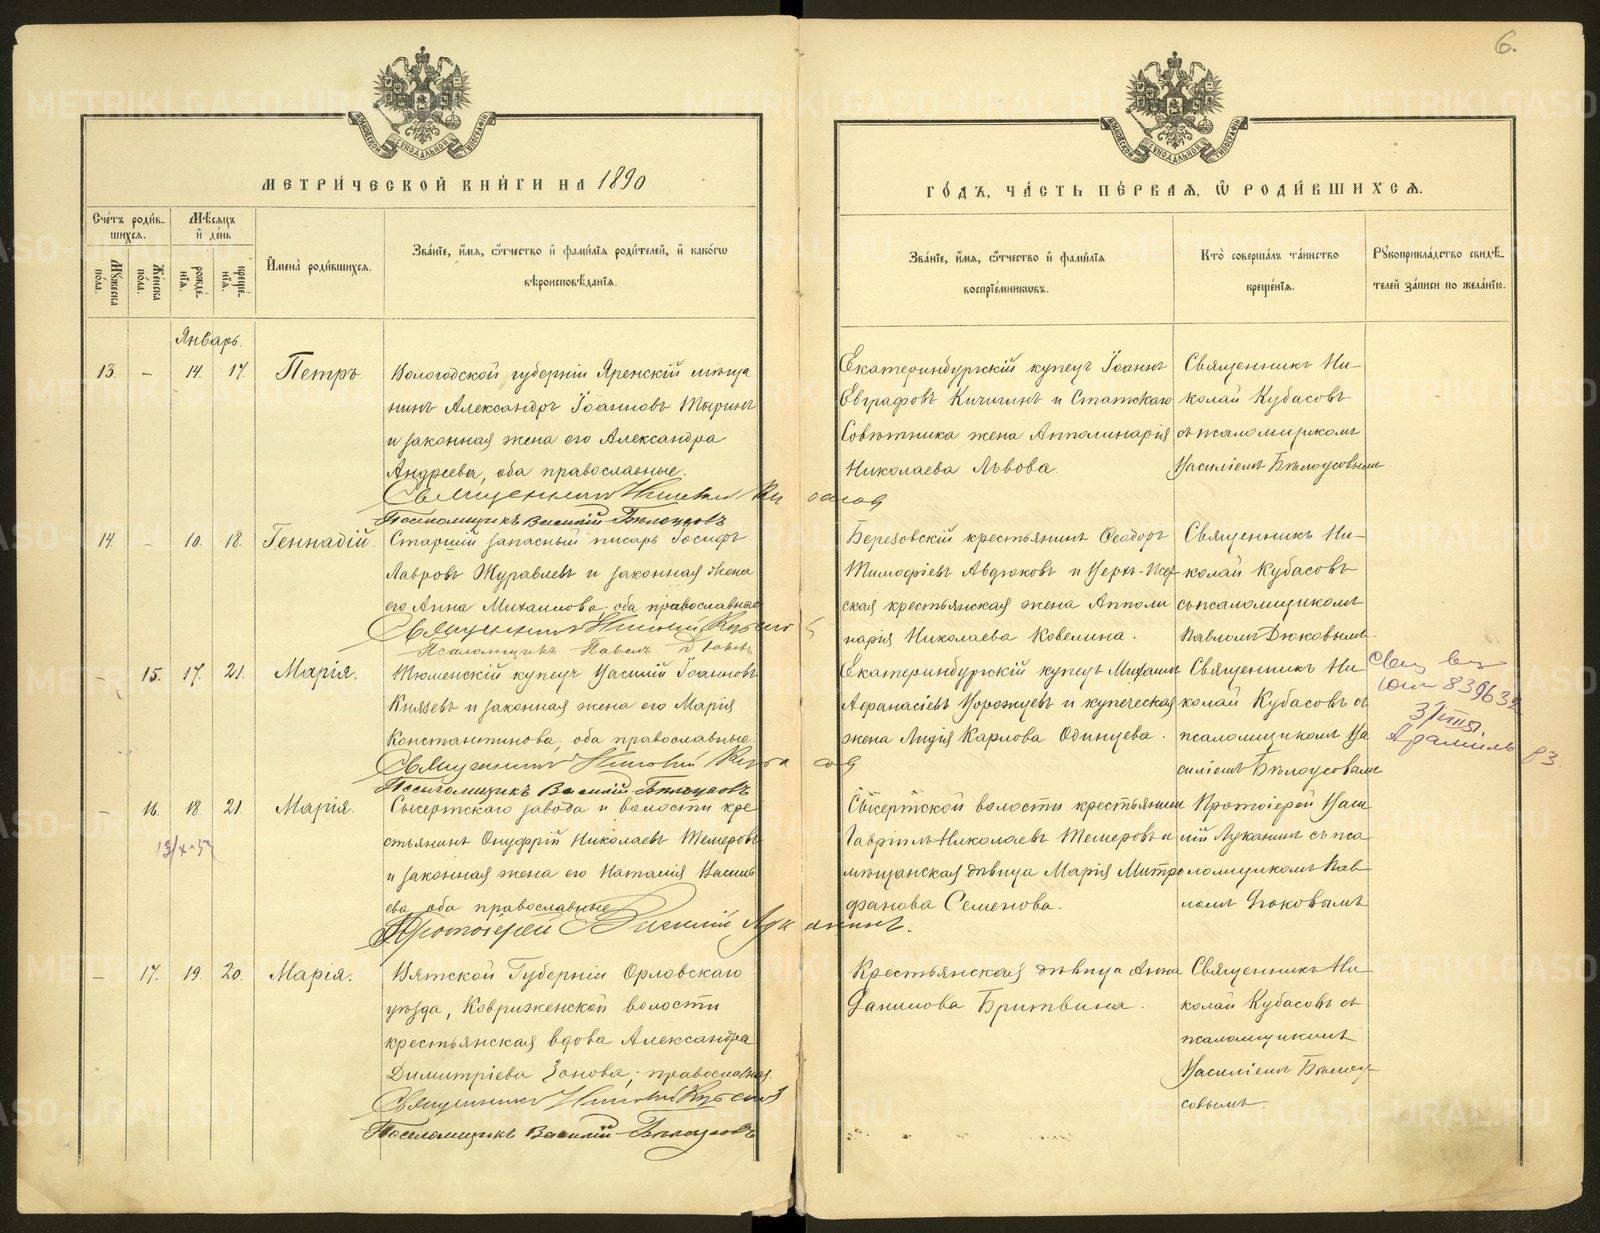 6.
МЕТРИ́ЧЕСКОЙ КНИ́ГИ НА 1890
ГО́ДЪ, ЧА́СТЬ ПЕ́РВАЯ, Ѡ РОДИ́ВШИХСЯ.
Сче́тъ роди́в-
шихся.
Му́жеска
по́ла.
Же́нска
по́ла.
Мѣ́сяцъ
и҆ де́нь
рожде́-
нїя.
креще́-
нїя.
И҆мена̀ роди́вшихся.
Зва́нїе, и҆́мя, ѻ҆́тчество и҆ фами́лїя роди́телей, и҆ како́гѡ
вѣроисповѣ́данїя.
Зва́нїе, и҆́мя, ѻ҆́тчество и҆ фами́лїя
воспрїе́мниковъ.
Кто̀ соверша́лъ та́инство
креще́нїя.
Рꙋкоприкла́дство свидѣ́-
телей за́писи по жела́нїю.
Январь.
13. - 14. 17. Петръ
Вологодской губерніи Яренскій мѣща
нинъ Александръ Іоанновъ Тыринъ
и законная жена его Александра
Андреева, оба православные.
Священникъ Николай Кубасовъ
Псаломщикъ Василій Бѣлоусовъ
Екатеринбургскій купецъ Іоаннъ
Евграфовъ Кичигинъ и Статскаго
Совѣтника жена Апполинарія
Николаева Львова.
Священникъ Ни-
колай Кубасовъ
съ псаломщикомъ
Василіемъ Бѣлоусовымъ
14. - 10. 18. Геннадій.
Старшій запасный писарь Іосифъ
Лавровъ Журавлевъ и законная жена
его Анна Михаилова, оба православные
Священникъ Николай Кубасовъ
Псаломщикъ Павелъ Дюковъ
Березовскій крестьянинъ Ѳеодоръ
Тимофіевъ Авдюковъ и Верхъ-Исет
ская крестьянская жена Апполи
нарія Николаева Ковелина.
Священникъ Ни-
колай Кубасовъ
съ псаломщикомъ
Павломъ Дюковымъ
- 15. 17. 21. Марія.
Тюменскій купецъ Василій Іоанновъ
Князевъ и законная жена его Марія
Константинова, оба православные.
Священникъ Николай Кубасовъ
Псаломщикъ Василій Бѣлоусовъ
Екатеринбургскій купецъ Михаилъ
Афанасіевъ Ворожцевъ и купеческая
жена Лидія Карлова Одинцева.
Священникъ Ни-
колай Кубасовъ съ
псаломщикомъ Ва
силіемъ Бѣлоусовымъ
839632
- 16. 18. 21. Марія.
Сысертскаго завода и волости кре
стьянинъ Онуфрій Николаевъ Темеровъ
и законная жена его Наталія Василь
ева, оба православные
Протоіерей Василій Луканинъ.
Сысертской волости крестьянинъ
Гавріилъ Николаевъ Темеровъ и
мѣщанская дѣвица Марія Митро
фанова Семенова.
Протоіерей Васи
лій Луканинъ съ пса
ломщикомъ Пав
ломъ Дюковымъ
- 17. 19. 20. Марія.
Вятской Губерніи Орловскаго
уѣзда, Коврижженской волости
крестьянская вдова Александра
Димитріева Зонова, православная
Священникъ Николай Кубасовъ
Псаломщикъ Василій Бѣлоусовъ
Крестьянская дѣвица Анна
Данилова Бритвина.
Священникъ Ни-
колай Кубасовъ съ
псаломщикомъ
Василіемъ Бѣлоу-
совымъ.